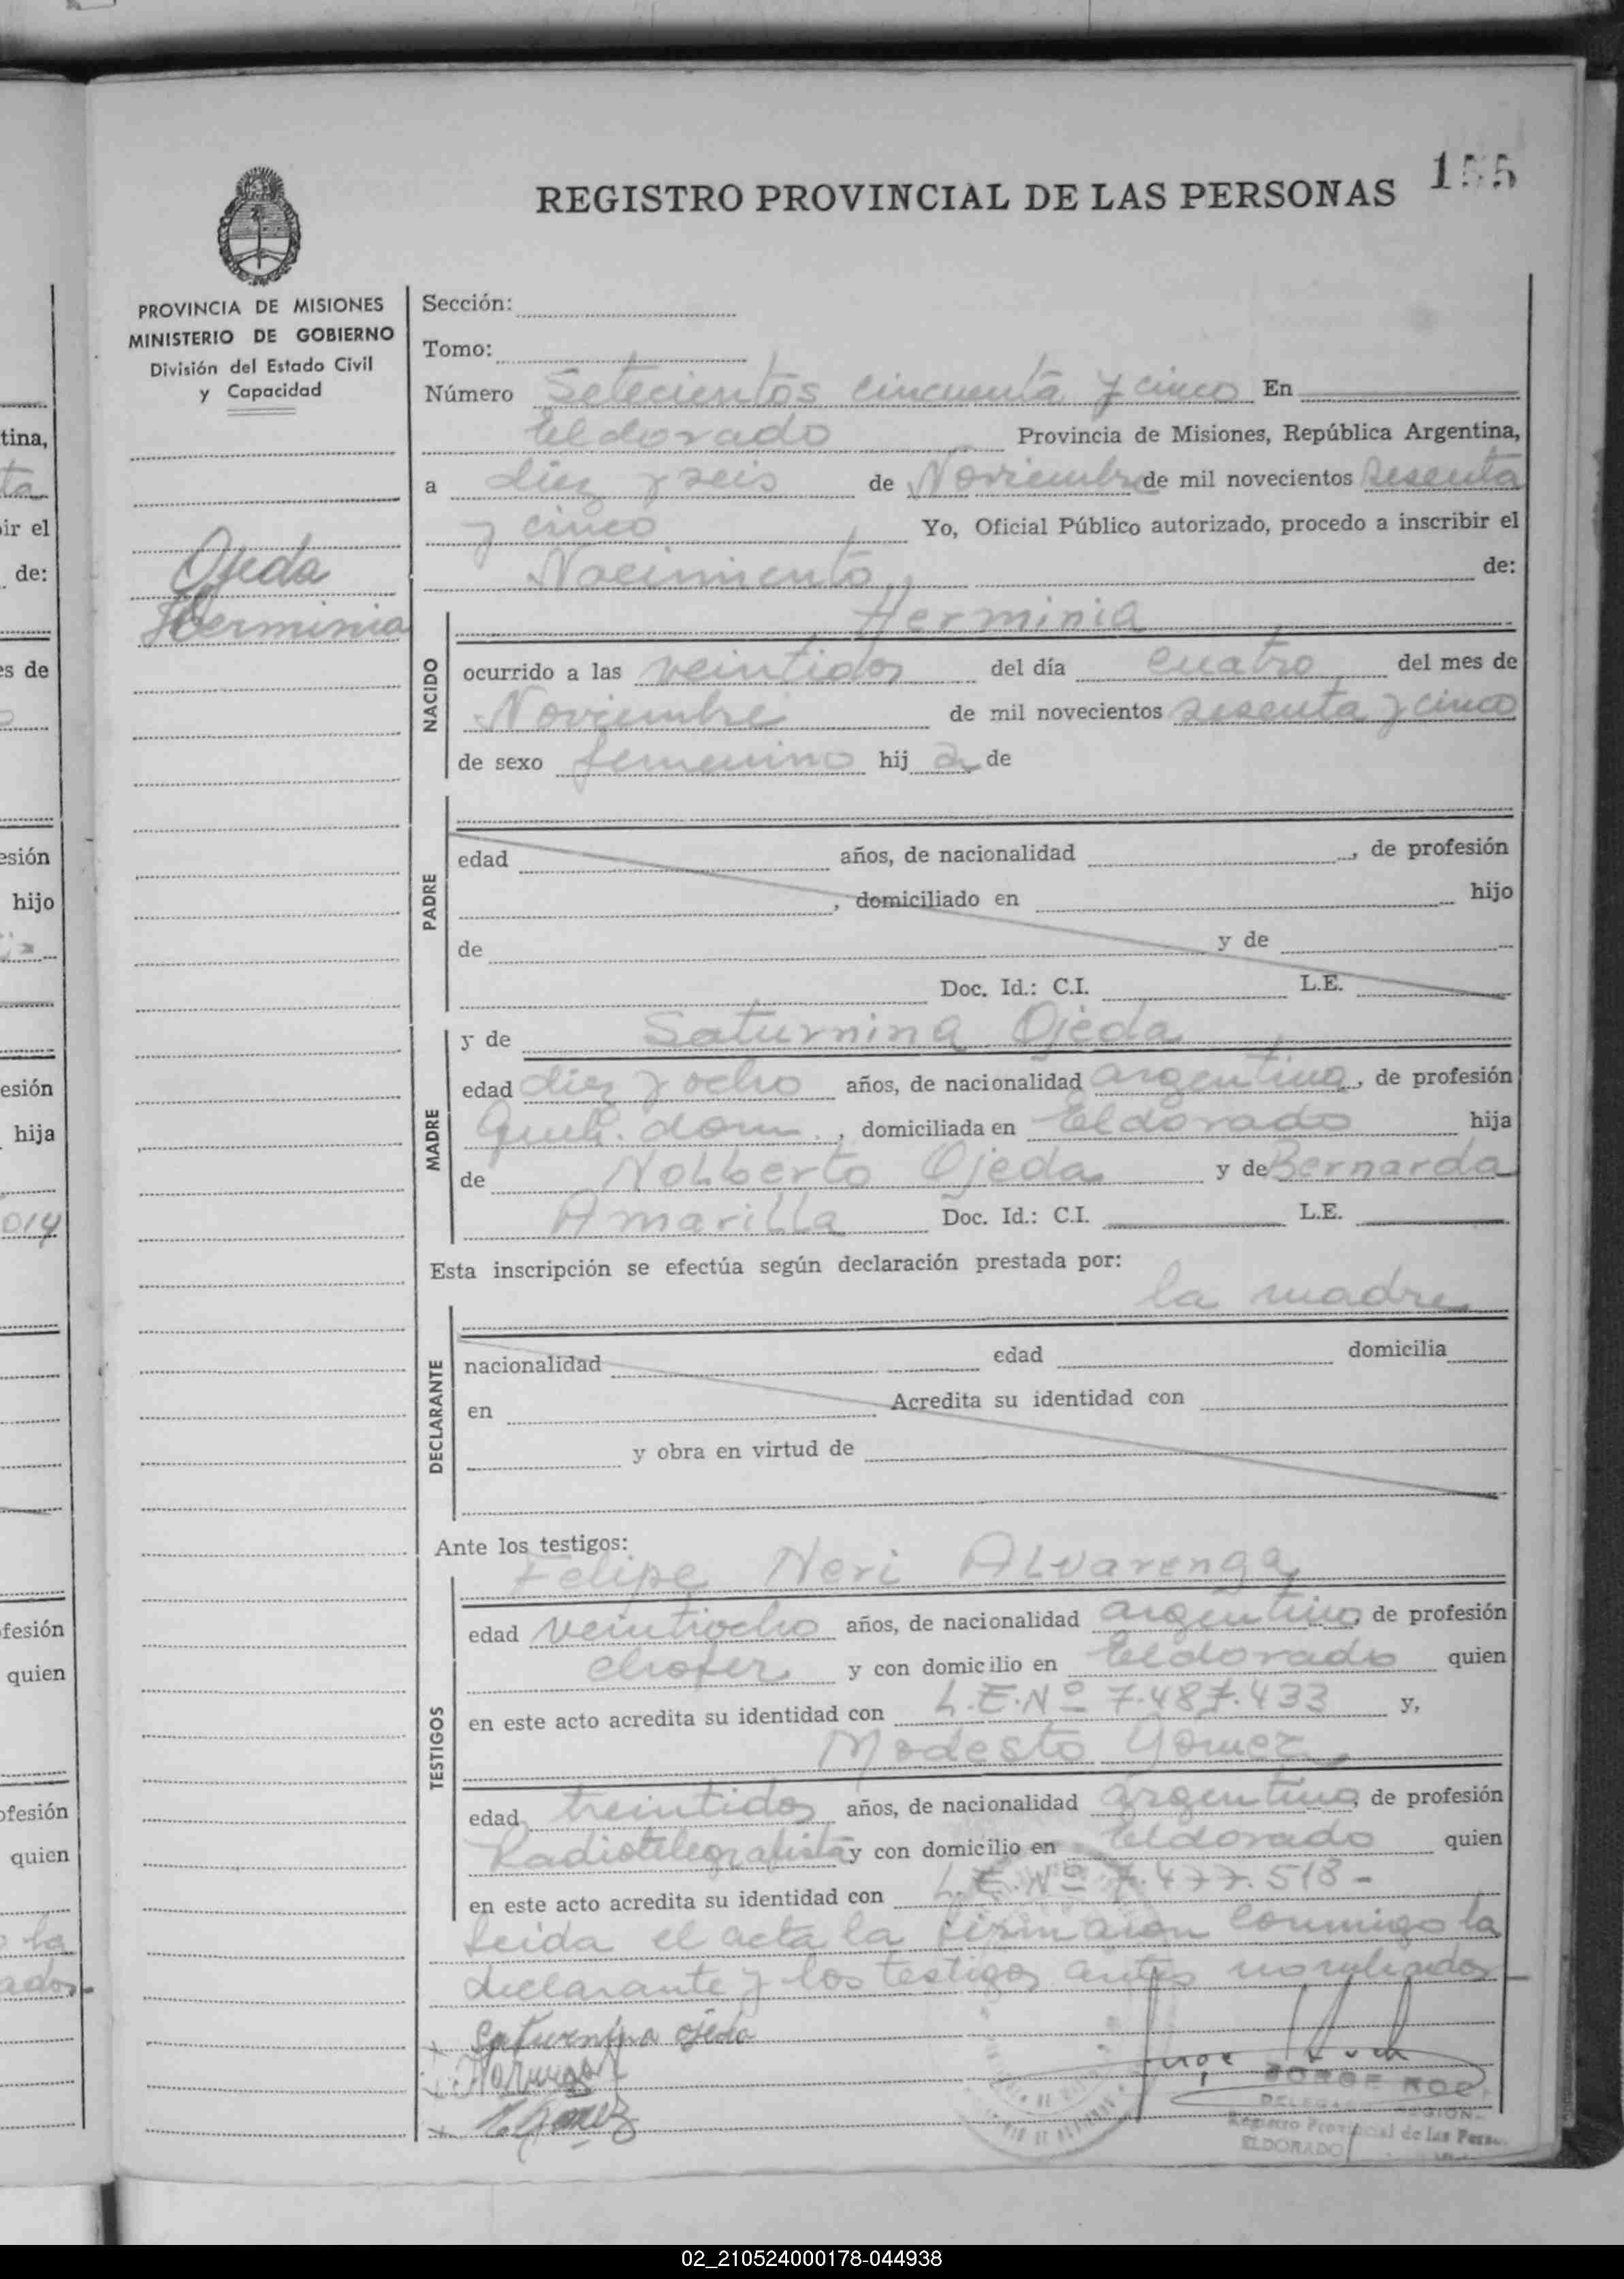 REGISTRO PROVINCIAL DE LAS PERSONAS 155
PROVINCIA DE MISIONES
MINISTERIO DE GOBIERNO
División del Estado Civil
y Capacidad
Ojeda
Herminia
Sección:
Tomo:
Número Setecientos cincuenta y cinco En
Eldorado Provincia de Misiones, República Argentina,
a diez y seis de Noviembre de mil novecientos sesenta
y cinco Yo, Oficial Público autorizado, procedo a inscribir el
Nacimiento de:
NACIDO
Herminia
ocurrido a las veintidos del día cuatro del mes de
Noviembre de mil novecientos sesenta y cinco
de sexo femenino hij a de
PADRE
edad años, de nacionalidad , de profesión
, domiciliado en hijo
de y de
Doc. Id.: C.I. L.E.
MADRE
y de Saturnina Ojeda
edad diez y ocho años, de nacionalidad argentina, de profesión
Queh. dom. , domiciliada en Eldorado hija
de Nolberto Ojeda y de Bernarda
Amarilla Doc. Id.: C.I. L.E.
Esta inscripción se efectúa según declaración prestada por:
la madre
DECLARANTE
nacionalidad edad domicilia
en Acredita su identidad con
y obra en virtud de
Ante los testigos:
TESTIGOS
Felipe Neri Alvarenga
edad veintiocho años, de nacionalidad argentino, de profesión
chofer y con domicilio en Eldorado quien
en este acto acredita su identidad con L.E.Nº 7.487.433 y,
Modesto Gómez
edad treintidos años, de nacionalidad argentino, de profesión
Radiotelegrafista y con domicilio en Eldorado quien
en este acto acredita su identidad con L.E.Nº 7.477.513-
Leida el acta la firmaron conmigo la
declarante y los testigos antes nombrados
Saturnina ojeda
Gomez
JORGE
Registro Provincial de las
ELDORADO
tina,
ta
ir el
de:
es de
esión
hijo
esión
hija
014
fesión
quien
ofesión
quien
la
ados-
02_210524000178-044938